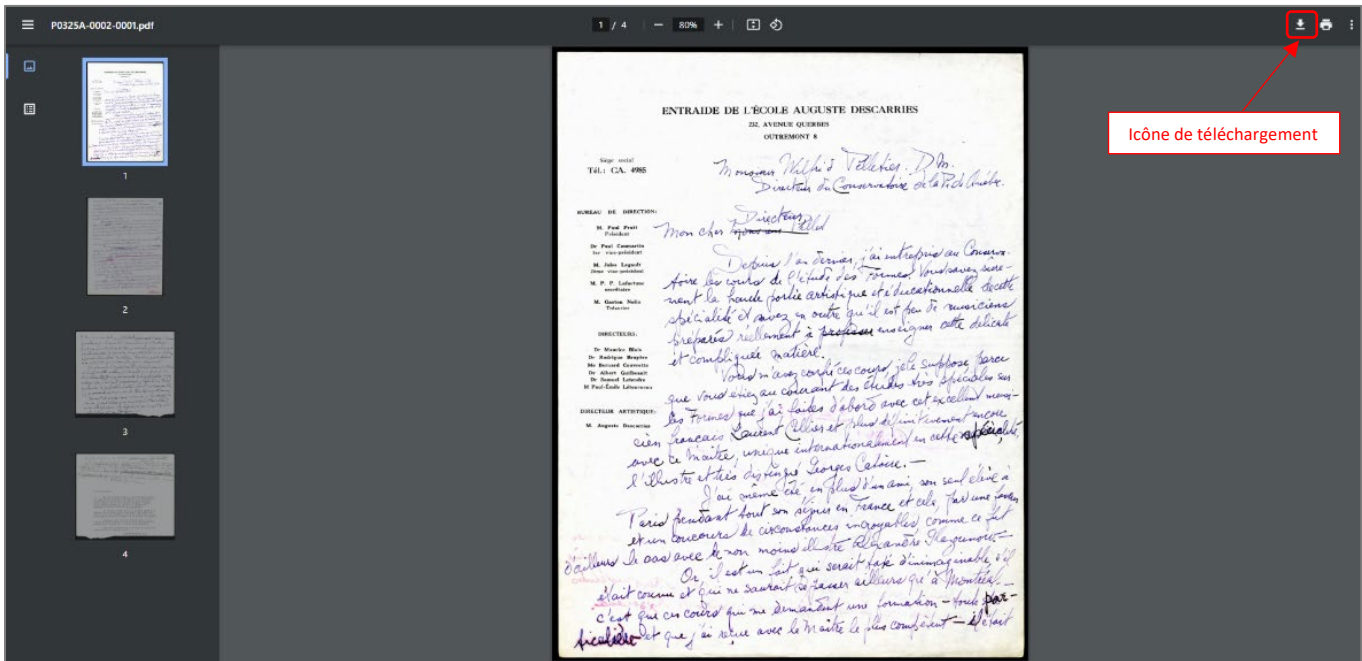 P0325A-0002-0001.pdf
1 / 4
80%
Icône de téléchargement
1
2
3
4
ENTRAIDE DE L'ÉCOLE AUGUSTE DESCARRIES
232, AVENUE QUERBES
OUTREMONT 8
Siège social
Tél.: CA. 4985
Monsieur Wilfrid Pelletier. D.M.
Directeur du Conservatoire de la P. de Québec.
BUREAU DE DIRECTION:
M. Paul Pratt
Président
Dr Paul Coumartin
1er vice-président
M. Jules
2ème vice-président
M. P. P. Lafortune
secrétaire
M. Gaston
Trésorier
DIRECTEURS:
Dr Maurice Blais
Dr Rodrigue Bruyère
Me Bernard Couvrette
Dr Albert Guilbeault
Dr Samuel Letendre
M Paul-Émile
DIRECTEUR ARTISTIQUE:
M. Auguste Descarries
Directeur
Mon cher
Depuis l'an dernier, j'ai entrepris au Conserva-
toire les cours de l'étude des Formes. Vous savez sure-
ment la haute portée artistique et éducationnelle de cette
spécialité et savez en outre qu'il est peu de musiciens
préparés réellement à professer enseigner cette délicate
et compliquée matière.
Vous m'avez confié ces cours, je le suppose, parce
que vous étiez au courant des études très spéciales sur
les Formes que j'ai faites d'abord avec cet excellent musi-
cien français Laurent Cellier et plus définitivement encore
avec ce Maître, unique internationalement en cette spécialité,
l'illustre et très distingué Georges Catoire.—
J'ai même été, en plus d'un ami, son seul élève à
Paris pendant tout son séjour en France et cela, par une
et un concours de circonstances incroyables, comme ce fut
d'ailleurs le cas avec le non moins illustre Alexandre Glazounow.—
Or, il est un fait qui serait taxé d'inimaginable, s'il
était connu et qui ne saurait se passer ailleurs qu'à Montréal.—
c'est que ces cours qui me demandent une formation — toute par-
ticulière et que j'ai reçue avec le Maître le plus compétent — était